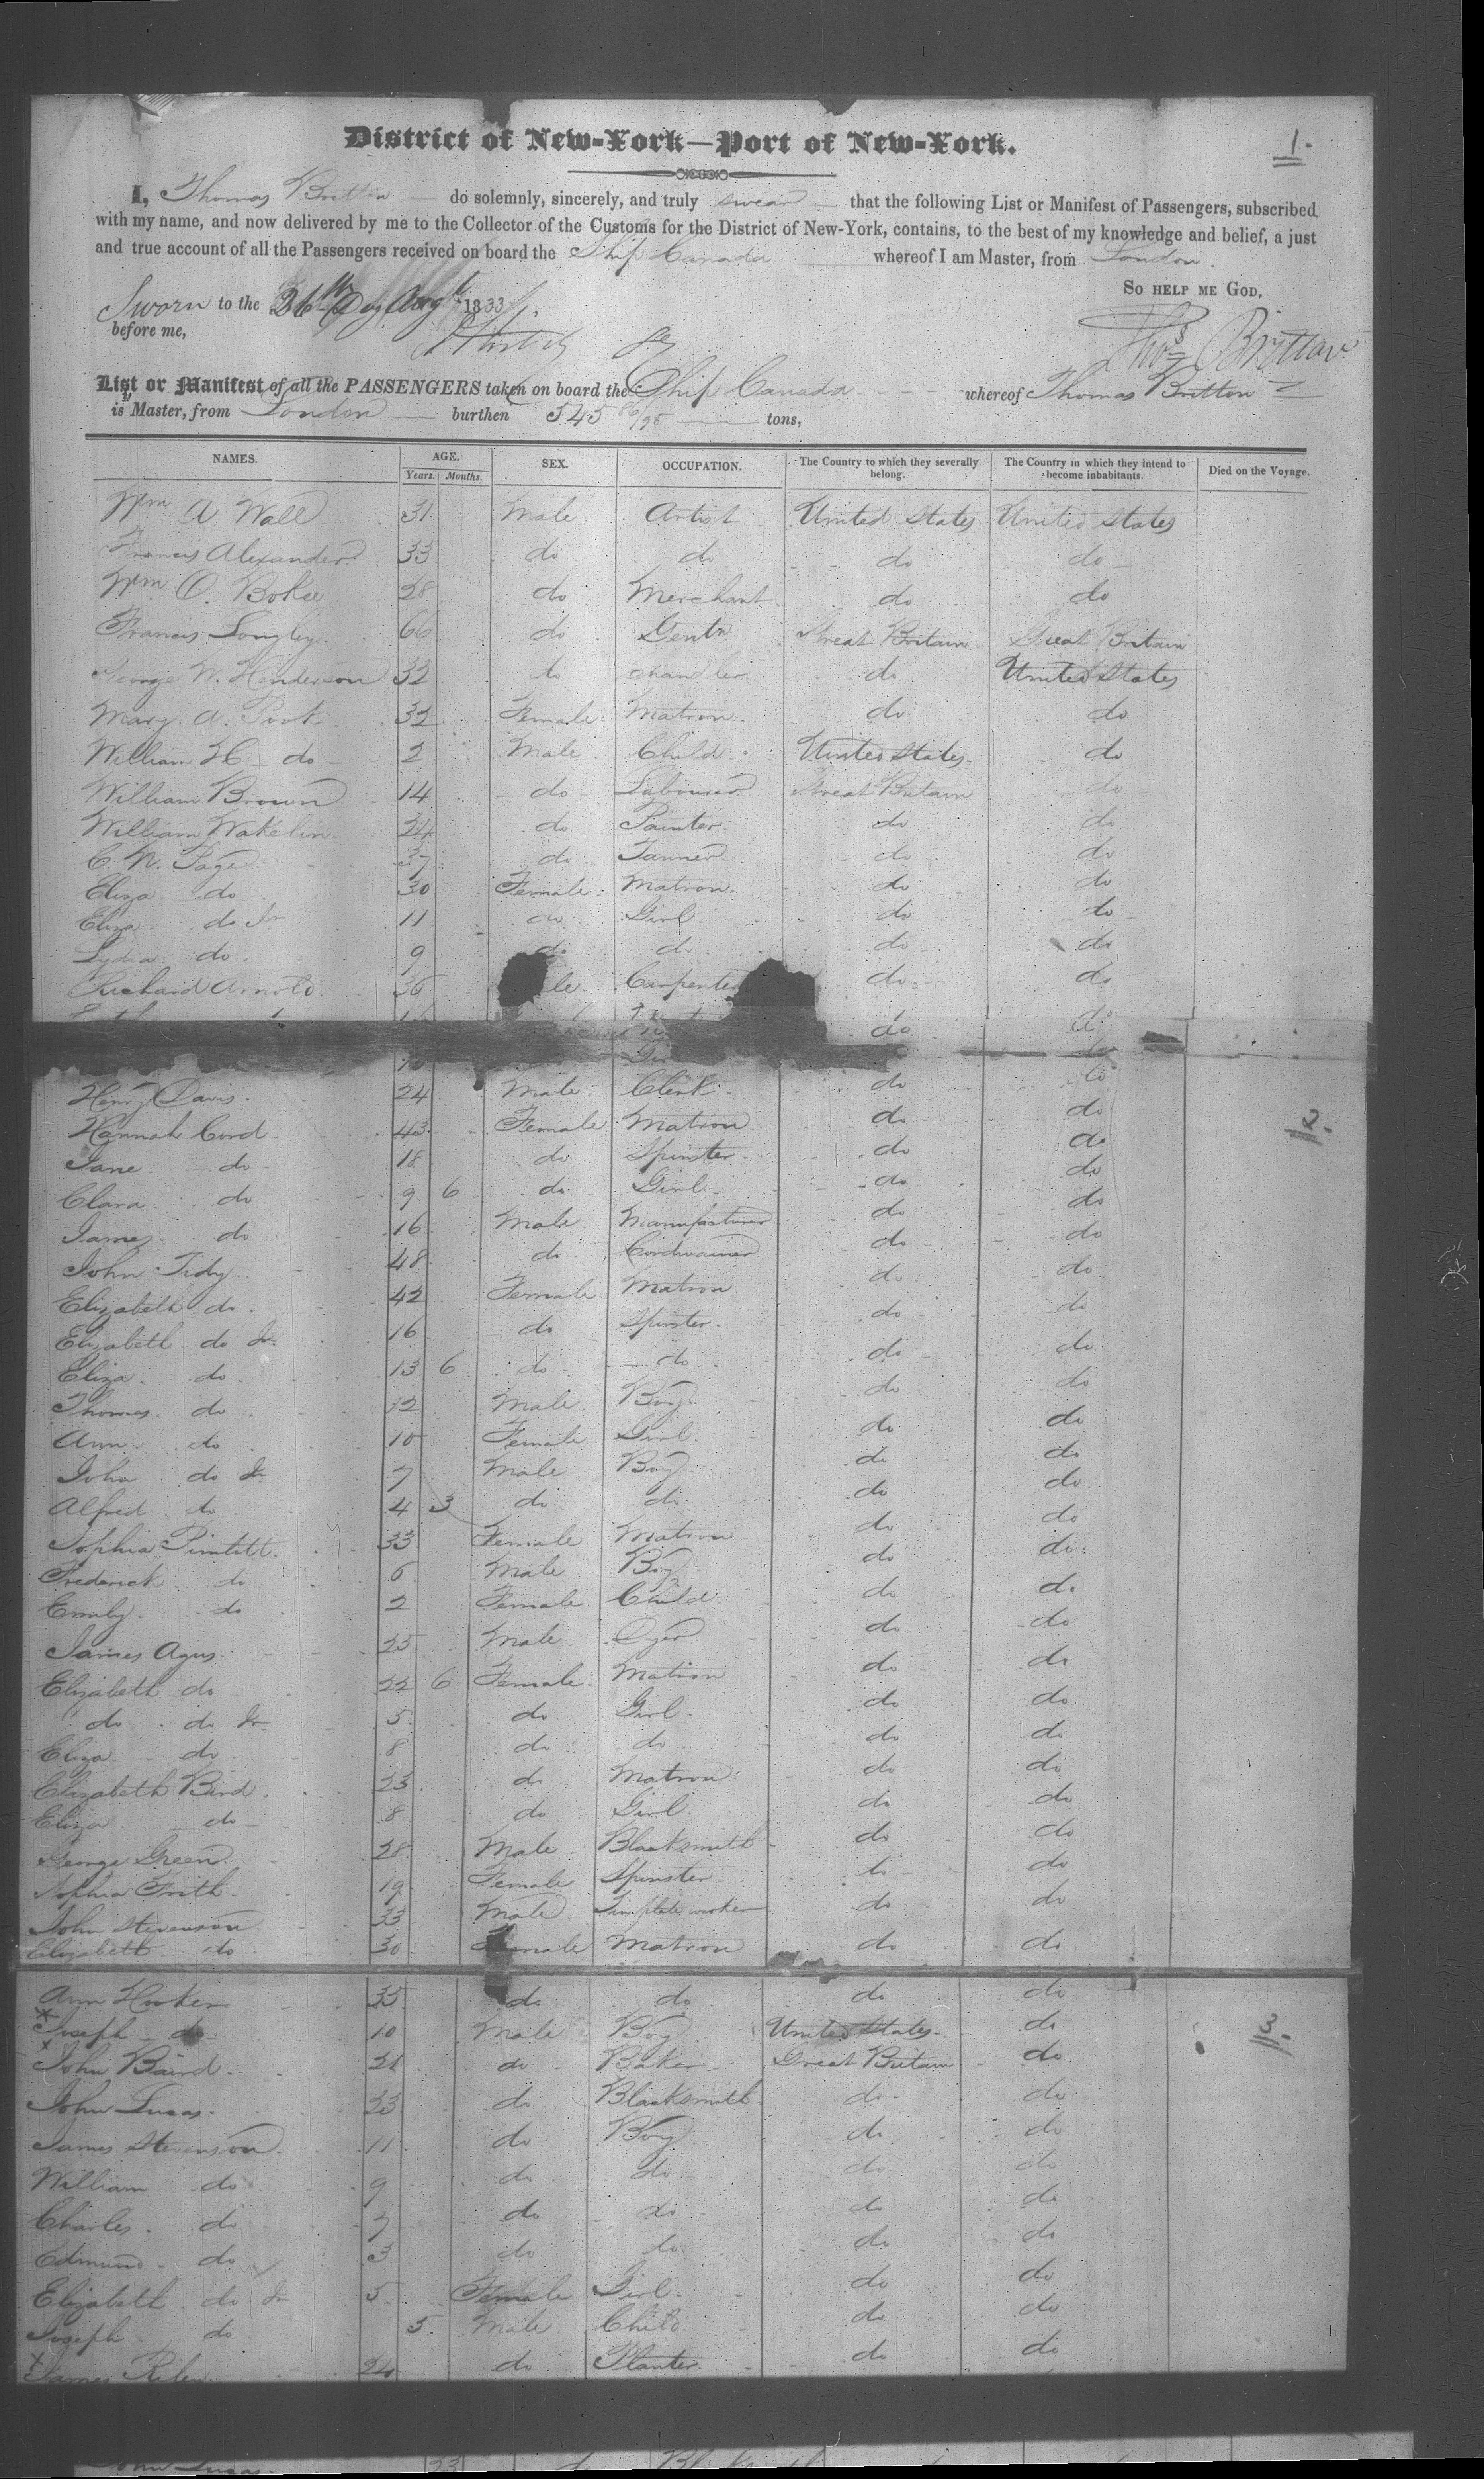 District of New-York—Port of New-York.
1.
I, Thomas Britton do solemnly, sincerely, and truly swear that the following List or Manifest of Passengers, subscribed
with my name, and now delivered by me to the Collector of the Customs for the District of New-York, contains, to the best of my knowledge and belief, a just
and true account of all the Passengers received on board the Ship Canada whereof I am Master, from London.
So help me God.
Sworn to the 26th Day Augt 1833
before me,
Thos Britton
List or Manifest of all the PASSENGERS taken on board the Ship Canada whereof Thomas Britton
is Master, from London burthen 545 86/95 tons,
NAMES. AGE. SEX. OCCUPATION. The Country to which they severally belong. The Country in which they intend to become inhabitants. Died on the Voyage.
Years. Months.
Wm A Wall 31 Male Artist United States United States
Francis Alexander 33 do do do do
Wm O. Bokee 28 do Merchant do do
Francis Longley 66 do Gentn Great Britain Great Britain
George W. Henderson 32 do Chandler do United States
Mary A. Pook 32 Female Matron do do
William H do 2 Male Child United States do
William Brown 14 do Labourer Great Britain do
William Wakelin 24 do Painter do do
C. N. Page 37 do Tanner do do
Eliza do 30 Female Matron do do
Eliza do Jr 11 do Girl do do
Lydia do 9 do do do do
Richard Arnold 36 le Carpenter do do
do do
Henry Davis 24 Male Clerk do do
2.
Hannah Cord 43 Female Matron do do
Jane do 18 do Spinster do do
Clara do 9 6 do Girl do do
James do 16 Male Manufacturer do do
John Tidy 48 do Cordwainer do do
Elizabeth do 42 Female Matron do do
Elizabeth do Jr. 16 do Spinster do do
Eliza do 13 6 do do do do
Thomas do 12 Male Boy do do
Ann do 10 Female Girl do do
John do Jr 7 Male Boy do do
Alfred do 4 3 do do do do
Sophia 33 Female Matron do do
Frederick do 6 Male Boy do do
Emily do 2 Female Child do do
James Agus 25 Male Dyer do do
Elizabeth do 22 6 Female Matron do do
do do Jr 5 do Girl do do
Eliza do 8 do do do do
Elizabeth Bird 23 do Matron do do
Eliza do 8 do Girl do do
George Green 28 Male Blacksmith do do
Sophia Frith 19 Female Spinster do do
John Stevenson 33 Male Tinplate worker do do
Elizabeth do 30 Female Matron do do
Ann Hooker 35 do do do do
Joseph do 10 Male Boy United States do
3.
John Baird 21 do Baker Great Britain do
John Lucas 23 do Blacksmith do do
James Stevenson 11 do Boy do do
William do 9 do do do do
Charles do 7 do do do do
Edmund do 3 do do do do
Elizabeth do Jr 5 Female Girl do do
Joseph do 5 Male Child do do
James 24 do Planter do do
John Lucas 23